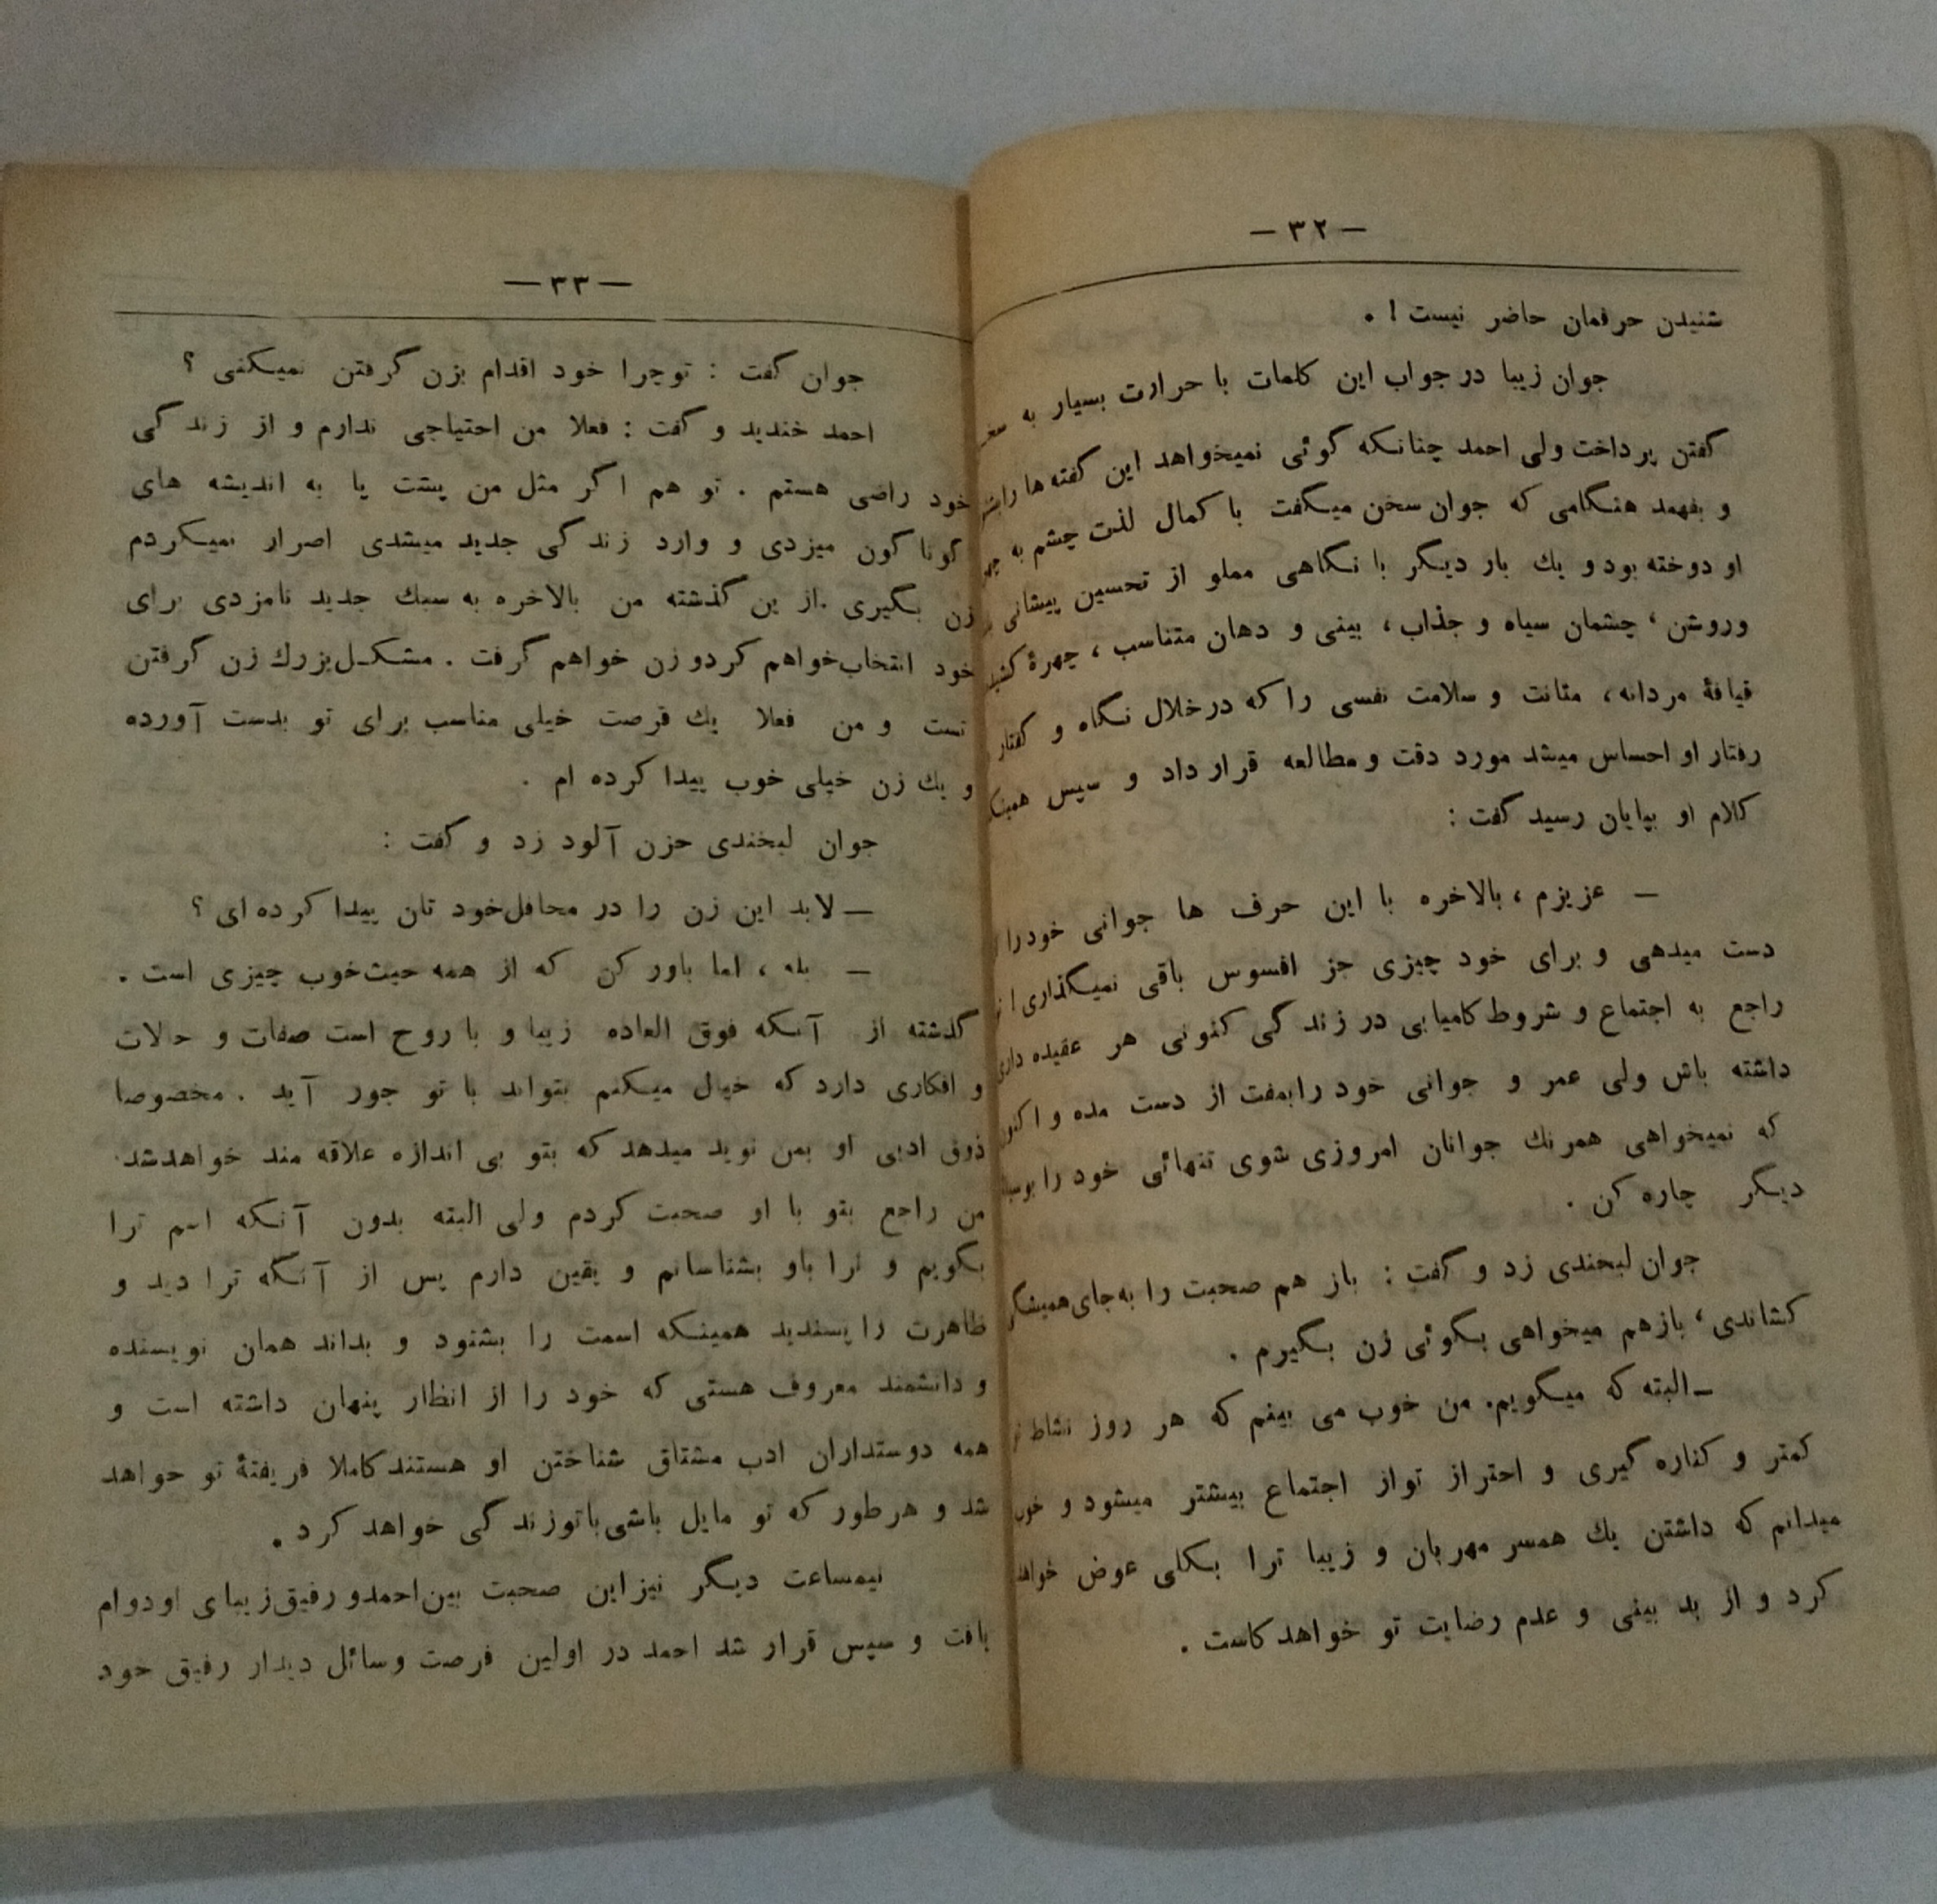 — ۳۲ —
شنیدن حرفمان حاضر نیست ! .
جوان زیبا در جواب این کلمات با حرارت بسیار به
گفتن پرداخت ولی احمد چنانکه گوئی نمیخواهد این گفته ها
و بفهمد هنگامی که جوان سخن میگفت با کمال لذت چشم به
او دوخته بود و یك بار دیگر با نگاهی مملو از تحسین پیشانی
وروشن ، چشمان سیاه و جذاب ، بینی و دهان متناسب ، چهرهٔ
قیافهٔ مردانه ، متانت و سلامت نفسی را که در خلال نگاه و گفتار
رفتار او احساس میشد مورد دقت و مطالعه قرار داد و سپس
کلام او بپایان رسید گفت :
— عزیزم ، بالاخره با این حرف ها جوانی خودرا
دست میدهی و برای خود چیزی جز افسوس باقی نمیگذاری !
راجع به اجتماع و شروط کامیابی در زندگی کنونی هر عقیده داری
داشته باش ولی عمر و جوانی خود را بمفت از دست مده و
که نمیخواهی همرنك جوانان امروزی شوی تنهائی خود را
دیگر چاره کن .
جوان لبخندی زد و گفت : باز هم صحبت را به جای
کشاندی ، بازهم میخواهی بگوئی زن بگیرم .
— البته که میگویم . من خوب می بینم که هر روز نشاط
کمتر و کناره گیری و احتراز تواز اجتماع بیشتر میشود و
میدانم که داشتن یك همسر مهربان و زیبا ترا بکلی عوض
کرد و از بد بینی و عدم رضایت تو خواهد کاست .
— ۳۳ —
جوان گفت : توچرا خود اقدام بزن گرفتن نمیکنی ؟
احمد خندید و گفت : فعلا من احتیاجی ندارم و از زندگی
خود راضی هستم . تو هم اگر مثل من پشت پا به اندیشه های
گوناگون میزدی و وارد زندگی جدید میشدی اصرار نمیکردم
زن بگیری . از ین گذشته من بالاخره به سبك جدید نامزدی برای
خود انتخاب خواهم کردو زن خواهم گرفت . مشکل بزرك زن گرفتن
تست و من فعلا یك فرصت خیلی مناسب برای تو بدست آورده
و یك زن خیلی خوب پیدا کرده ام .
جوان لبخندی حزن آلود زد و گفت :
— لابد این زن را در محافل خود تان پیدا کرده ای ؟
— بله ، اما باور کن که از همه حیث خوب چیزی است .
گذشته از آنکه فوق العاده زیبا و با روح است صفات و حالات
و افکاری دارد که خیال میکنم بتواند با تو جور آید . مخصوصا
ذوق ادبی او بمن نوید میدهد که بتو بی اندازه علاقه مند خواهدشد .
من راجع بتو با او صحبت کردم ولی البته بدون آنکه اسم ترا
بگویم و ترا باو بشناسانم و یقین دارم پس از آنکه ترا دید و
ظاهرت را پسندید همینکه اسمت را بشنود و بداند همان نویسنده
و دانشمند معروف هستی که خود را از انظار پنهان داشته است و
همه دوستداران ادب مشتاق شناختن او هستند کاملا فریفتهٔ تو خواهد
شد و هرطور که تو مایل باشی با توزندگی خواهد کرد .
نیمساعت دیگر نیز این صحبت بین احمدو رفیق زیبای او دوام
یافت و سپس قرار شد احمد در اولین فرصت وسائل دیدار رفیق خود